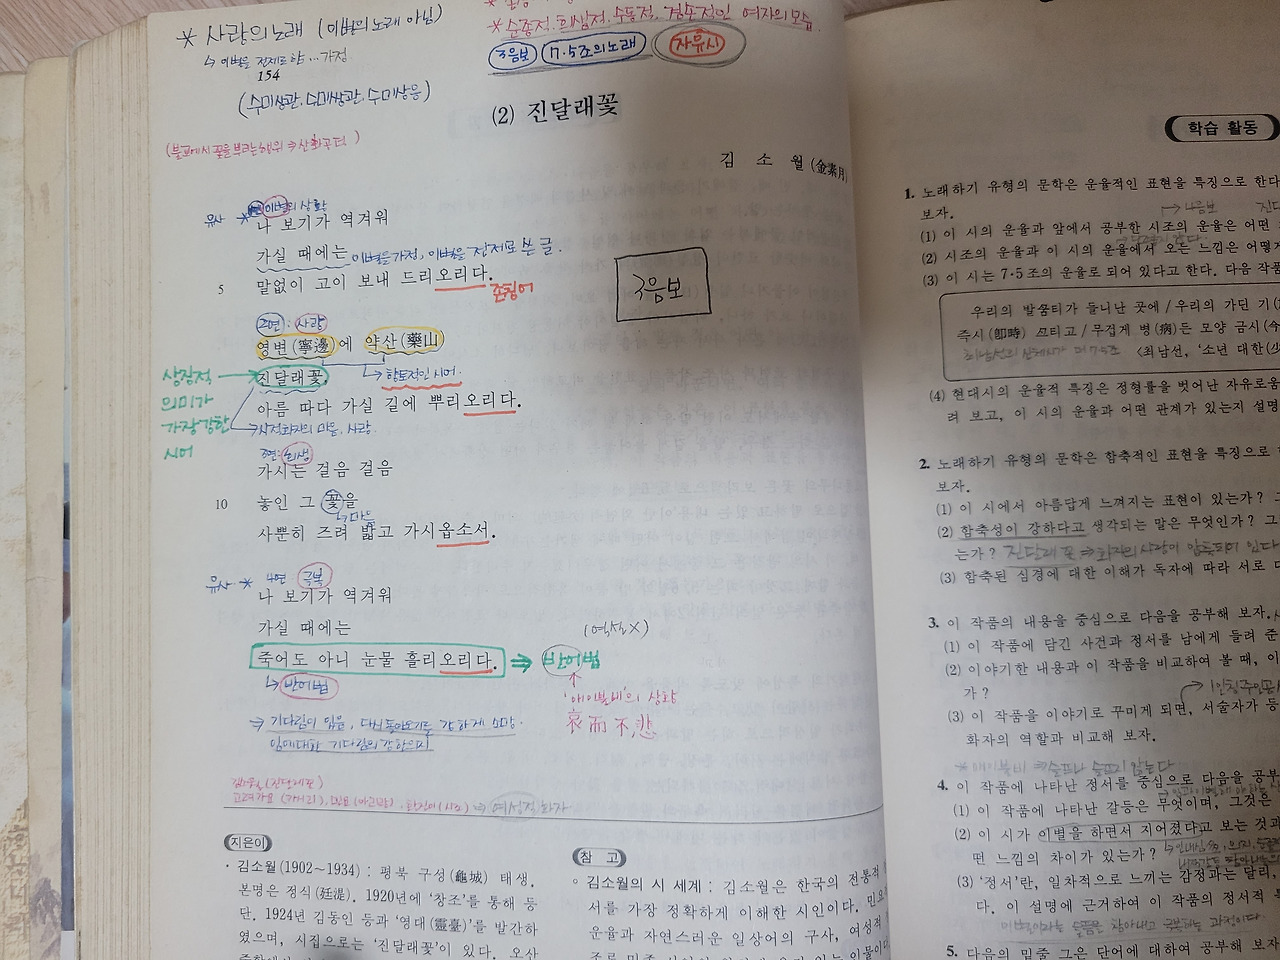 * 사랑의 노래 (이별의 노래 아님)
↳ 이별을 전제로 한 … 가정
154
(수미상관, 수미쌍관, 수미상응)
* 순종적, 희생적, 수동적, 겸손적인 여자의 모습
3음보 7·5조의 노래 자유시
(2) 진달래꽃
(불교에서 꽃을 뿌리는 행위 ⇒ 산화공덕)
김 소 월 (金素月)
이별의 상황
유사 * 나 보기가 역겨워
가실 때에는 이별을 가정, 이별을 전제로 쓴 글.
5 말없이 고이 보내 드리오리다.
존칭어
3음보
2연: 사랑
영변(寧邊)에 약산(藥山
진달래꽃, → 향토적인 시어.
상징적 의미가 가장 강한 시어
아름 따다 가실 길에 뿌리오리다.
→ 시적화자의 마음, 사랑.
3연: 희생
가시는 걸음 걸음
10 놓인 그 꽃을
↳ 마음
사뿐히 즈려 밟고 가시옵소서.
4연 극복
유사 * 나 보기가 역겨워
가실 때에는
(역설X)
죽어도 아니 눈물 흘리오리다. ⇒ 반어법
↳ 반어법
'애이불비'의 상황
哀而不悲
⇒ 기다림이 있음, 다시 돌아오기를 강하게 소망.
김소월(진달래꽃)
⇒ 여성적 화자
지은이
· 김소월(1902~1934) : 평북 구성(龜城) 태생.
본명은 정식(廷湜). 1920년에 '창조'를 통해 등
단. 1924년 김동인 등과 '영대(靈臺)'를 발간하
였으며, 시집으로는 '진달래꽃'이 있다. 오산
참 고
◦ 김소월의 시 세계 : 김소월은 한국의 전통적
서를 가장 정확하게 이해한 시인이다. 민요
운율과 자연스러운 일상어의 구사, 여성적
학습 활동
1. 노래하기 유형의 문학은 운율적인 표현을 특징으로 한다
보자.
(1) 이 시의 운율과 앞에서 공부한 시조의 운율은 어떤
(2) 시조의 운율과 이 시의 운율에서 오는 느낌은 어떻게
(3) 이 시는 7·5조의 운율로 되어 있다고 한다. 다음 작품
우리의 발꿈티가 들니난 곳에 / 우리의 가딘 기
즉시(卽時) 끄티고 / 무겁게 병(病)든 모양 금시(今
〈최남선, '소년 대한(少
(4) 현대시의 운율적 특징은 정형률을 벗어난 자유로움
려 보고, 이 시의 운율과 어떤 관계가 있는지 설명
2. 노래하기 유형의 문학은 함축적인 표현을 특징으로
보자.
(1) 이 시에서 아름답게 느껴지는 표현이 있는가? 그
(2) 함축성이 강하다고 생각되는 말은 무엇인가? 그
는가? 진달래꽃 ⇒ 화자의 사랑이 함축되어 있다
(3) 함축된 심경에 대한 이해가 독자에 따라 서로 다
3. 이 작품의 내용을 중심으로 다음을 공부해 보자.
(1) 이 작품에 담긴 사건과 정서를 남에게 들려 준
(2) 이야기한 내용과 이 작품을 비교하여 볼 때, 이
가? 1인칭주인공
(3) 이 작품을 이야기로 꾸미게 되면, 서술자가 등
화자의 역할과 비교해 보자.
* 애이불비 ⇒ 슬프나 슬프지 않는다
4. 이 작품에 나타난 정서를 중심으로 다음을 공부
(1) 이 작품에 나타난 갈등은 무엇이며, 그것은
(2) 이 시가 이별을 하면서 지어졌다고 보는 것과
떤 느낌의 차이가 있는가?
(3) '정서'란, 일차적으로 느끼는 감정과는 달리,
다. 이 설명에 근거하여 이 작품의 정서적 특
5. 다음의 밑줄 그은 단어에 대하여 공부해 보자